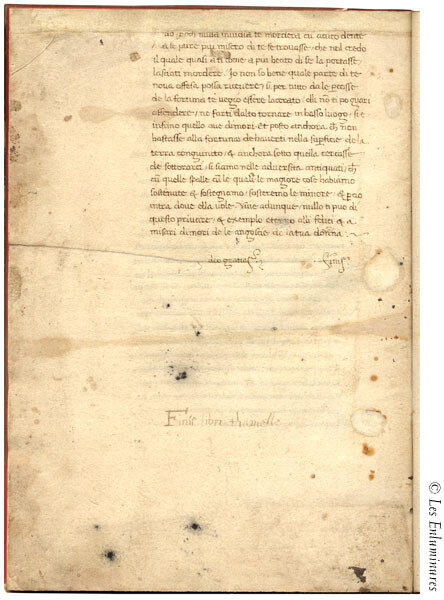 nulla invidia te mordera cu acuto dente
se pure piu misero di te se trovasse / che nol credo
il quale quasi a ti como a piu beato di se la portasse
lasciati mordere. Io non so bene quale parte di te
nova offesa possa ricevere / si per tutto da le
de la fortuna te vegio essere lacerato / elli no ti po guari
offendere / ne farti dalto tornare in basso luogo / si e
infimo quello ove dimori. Et posto anchora ch non
bastasse alla fortuna de haverti nella supficie de la
terra congiunto, & anchora sotto quella cercasse
de sotterarci / si siamo nelle adversita antiquati / ch
cu quelle spalle cu le quali le magiore cose habiamo
sostenute & sostegnamo / sosteremo le minore / & pero
intra dove ella vole. Vive adunque / nullo ti puo di
questo privare / & exemplo eterno alli felici & a
miseri dimori de le angosie de la tua donna.
deo gratias finis
Finis libri
© Les Enluminures